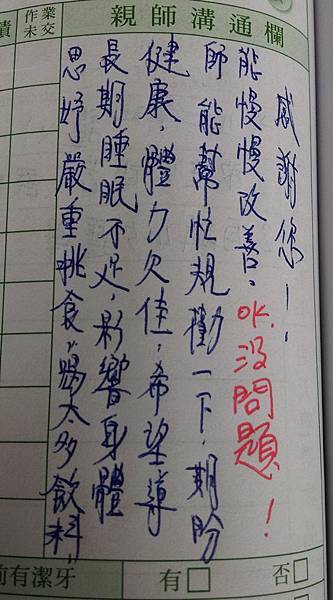 績
作業
未交
親師溝通欄
思妤嚴重挑食,喝太多飲料,
長期睡眠不足,影響身體
健康,體力欠佳,希望導
師能幫忙規勸一下,期盼
能慢慢改善。OK,沒問題!
感謝您!
前有潔牙 有□ 否□